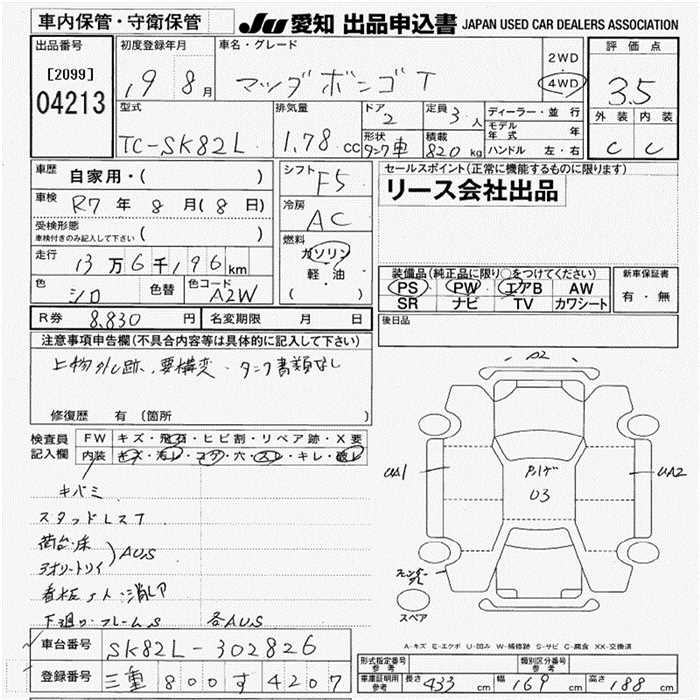 車内保管・守衛保管
JU 愛知 出品申込書 JAPAN USED CAR DEALERS ASSOCIATION
出品番号
[2099]
04213
初度登録年月
19 8月
車名・グレード
マツダボンゴT
2WD
4WD
評価点
3.5
外装 内装
C C
型式
TC-SK82L
排気量
1.78 CC
ドア
2
形状
タンク車
定員 3人
積載
820kg
ディーラー・並行
モデル年式 年
ハンドル 左・右
車歴
自家用・( )
車検
R7年8月(8日)
受検形態
車検付きのみ記入して下さい ( )
走行
13万6千196km
色
シロ
色替
色コード
A2W
シフト
F5
冷房
AC
燃料
ガソリン
軽・油
( )
セールスポイント(正常に機能するものに限ります)
リース会社出品
装備品(純正品に限り○をつけてください)
PS PW エアB AW
SR ナビ TV カワシート
新車保証書
有・無
後日品
R券 8,830円
名変期限 月 日
注意事項申告欄(不具合内容等は具体的に記入して下さい)
上物外し跡、要構変、タンク書類なし
修復歴 有(箇所 )
検査員記入欄
FW キズ・飛石・ヒビ割・リペア跡・X要
内装 キズ・汚レ・コゲ・穴・スレ・キレ・破レ
キバミ
スタッドレスT
荷台・床
アオリ・トリイ
AUS
看板
下廻り・フレームS 各AUS
A2
UA1
UA2
U3
スペア
A-キズ E-エクボ U-凹み W-補修跡 S-サビ C-腐食 XX-交換済
車台番号 SK82L-302826
登録番号 三重800す4207
形式指定番号 参考
類別区分番号 参考
車庫証明用 参考
長さ 433cm 幅 169cm 高さ 188cm